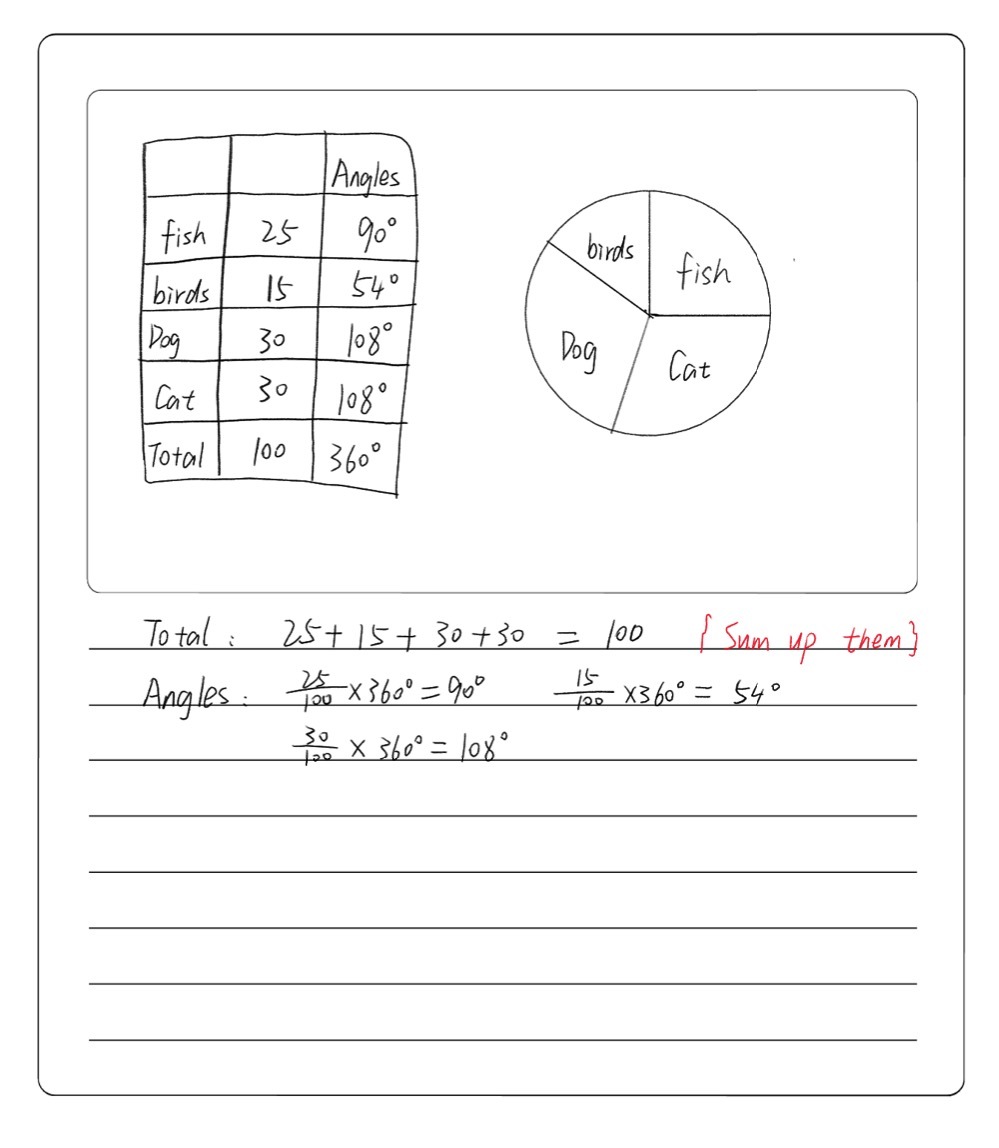 Angles
fish 25 90°
birds 15 54°
Dog 30 108°
Cat 30 108°
Total 100 360°
birds
fish
Dog
Cat
Total: 25+15+30+30 = 100 {Sum up them}
Angles: 25/100 ×360°=90° 15/100 ×360°= 54°
30/100 × 360°= 108°